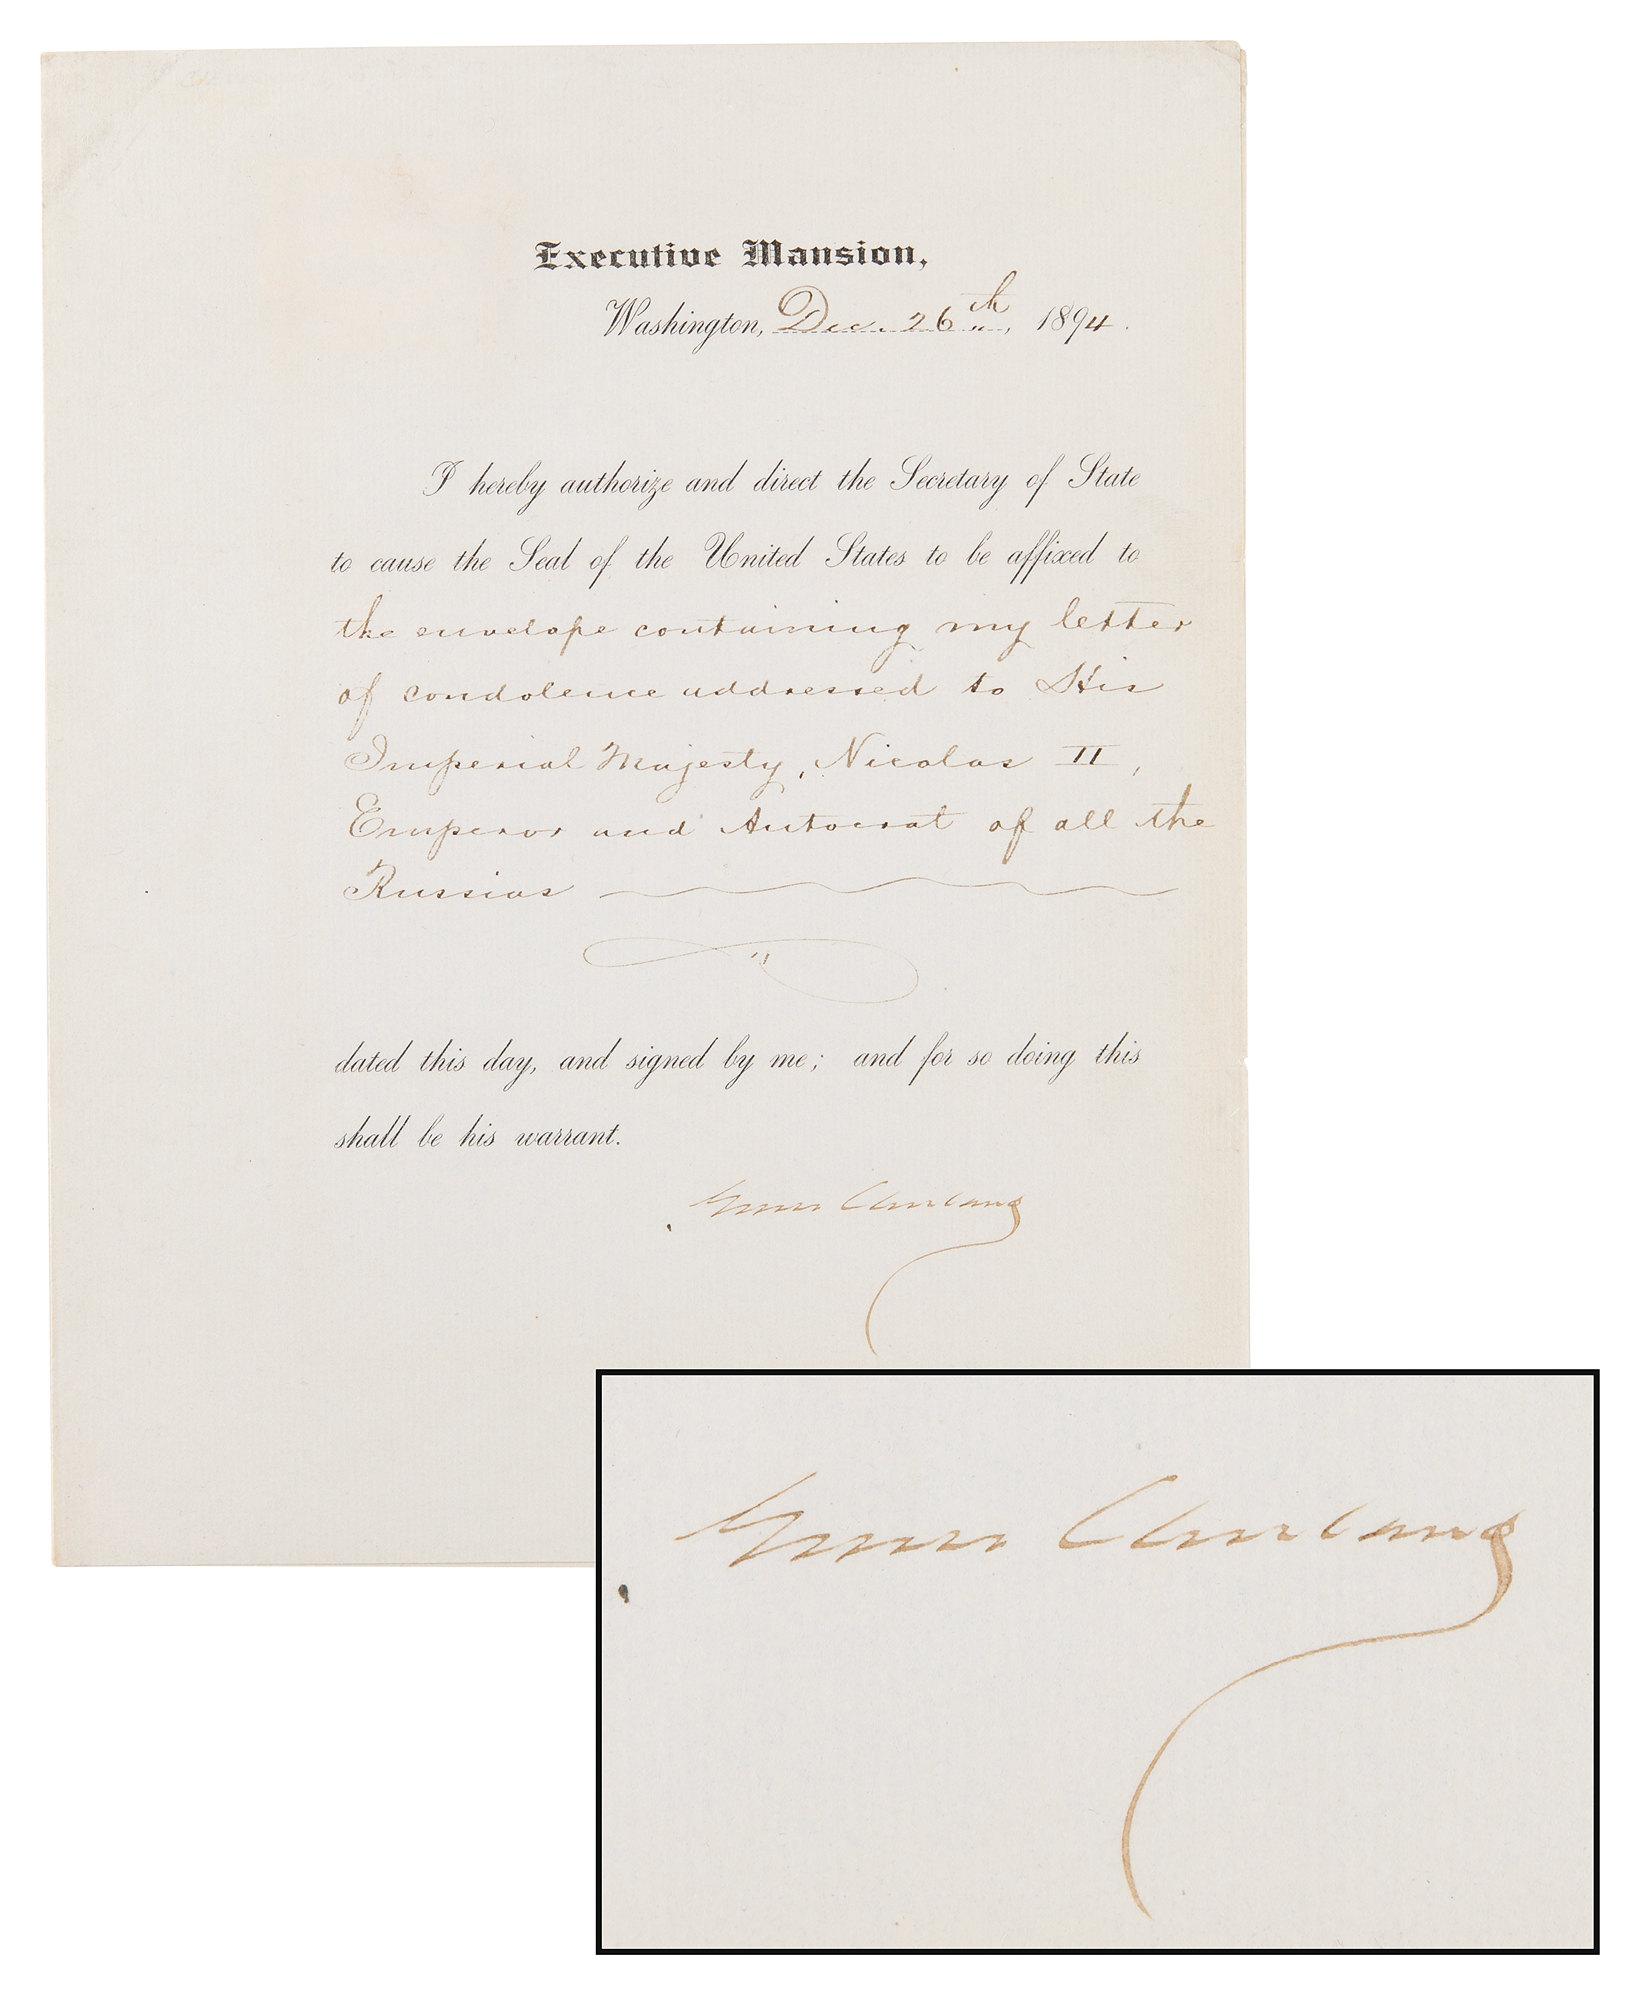 Executive Mansion,
Washington, Dec. 26th, 1894.
I hereby authorize and direct the Secretary of State
to cause the Seal of the United States to be affixed to
the envelope containing my letter
of condolence addressed to His
Imperial Majesty, Nicolas II,
Emperor and Autocrat of all the
Russias
dated this day, and signed by me; and for so doing this
shall be his warrant.
Grover Cleveland
Grover Cleveland